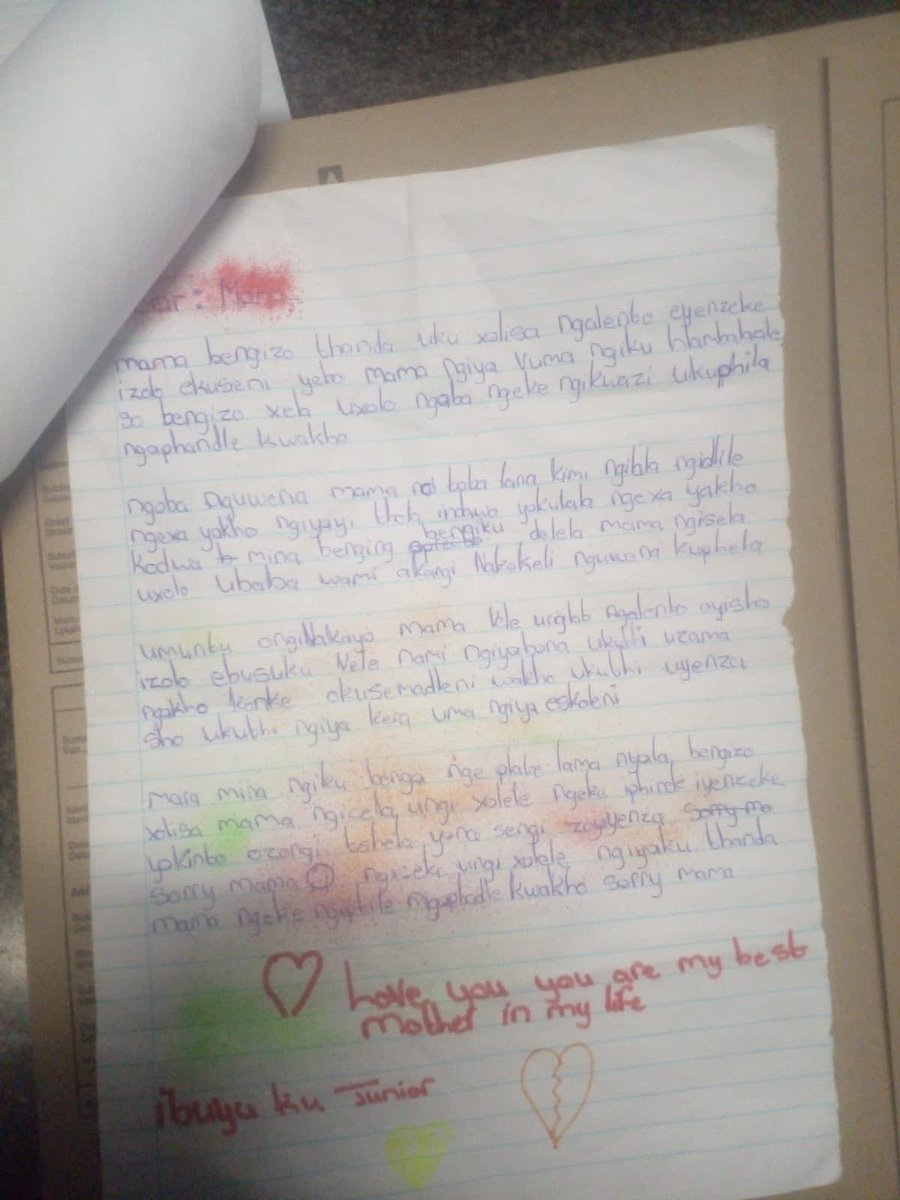 ar: Mom
mama bengizo thanda uku xolisa ngalento eyenzeke
izolo ekuseni yebo mama ngiya vuma ngiku
so bengizo xela uxolo ngoba ngeke ngikwazi ukuphila
ngaphandle kwakho
ngoba nguwena mama no baba lana kimi ngidlile
ngexa yakho ngiyayi thola indawo yokulala ngexa yakho
kodwa mina benging bengiku delela mama ngisela
uxolo ubaba wami akangi Nakakeli nguwena kuphela
umuntu onginakayo mama ngalento oyisho
izolo ebusuku Nele nami ngiyabona ukuthi uzama
ngakho konke okusemadleni wakho ukuthi uyenza
sho ukuthi ngiya kera uma ngiya eskoleni
mara mina ngiku bonga nge lama nyala, bengizo
xolisa mama ngicela ungi xolele ngeke iphinde iyenzeke
yokinto ozongi tshela yona sengi zoyiyenza sorry ma
sorry mama ngicela ungi xolele ngiyaku thanda
mama ngeke ngiphile ngaphadle kwakho sorry mama
Love you you are my best
mother in my life
ibuya ku Junior